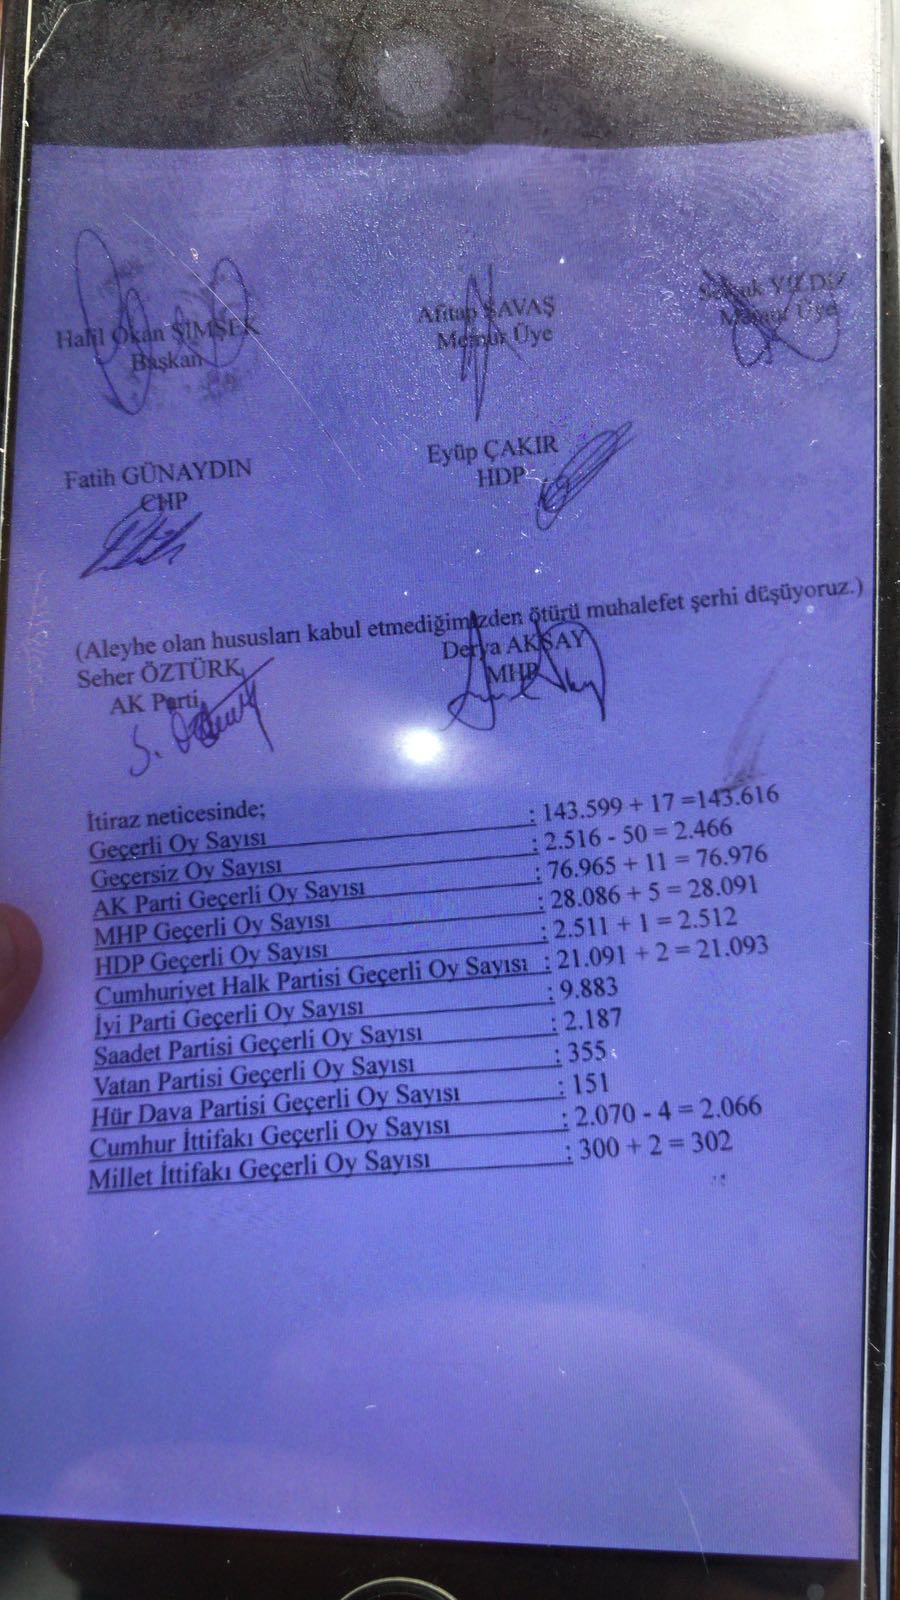 Halil Okan ŞİMŞEK
Başkan
Afitap SAVAŞ
Memur Üye
Selçuk YILDIZ
Memur Üye
Fatih GÜNAYDIN
CHP
Eyüp ÇAKIR
HDP
(Aleyhe olan hususları kabul etmediğimizden ötürü muhalefet şerhi düşüyoruz.)
Seher ÖZTÜRK
AK Parti
Derya AKSAY
MHP
İtiraz neticesinde;
Geçerli Oy Sayısı : 143.599 + 17 =143.616
Geçersiz Oy Sayısı : 2.516 - 50 = 2.466
AK Parti Geçerli Oy Sayısı : 76.965 + 11 = 76.976
MHP Geçerli Oy Sayısı : 28.086 + 5 = 28.091
HDP Geçerli Oy Sayısı : 2.511 + 1 = 2.512
Cumhuriyet Halk Partisi Geçerli Oy Sayısı : 21.091 + 2 = 21.093
İyi Parti Geçerli Oy Sayısı : 9.883
Saadet Partisi Geçerli Oy Sayısı : 2.187
Vatan Partisi Geçerli Oy Sayısı : 355
Hür Dava Partisi Geçerli Oy Sayısı : 151
Cumhur İttifakı Geçerli Oy Sayısı : 2.070 - 4 = 2.066
Millet İttifakı Geçerli Oy Sayısı : 300 + 2 = 302